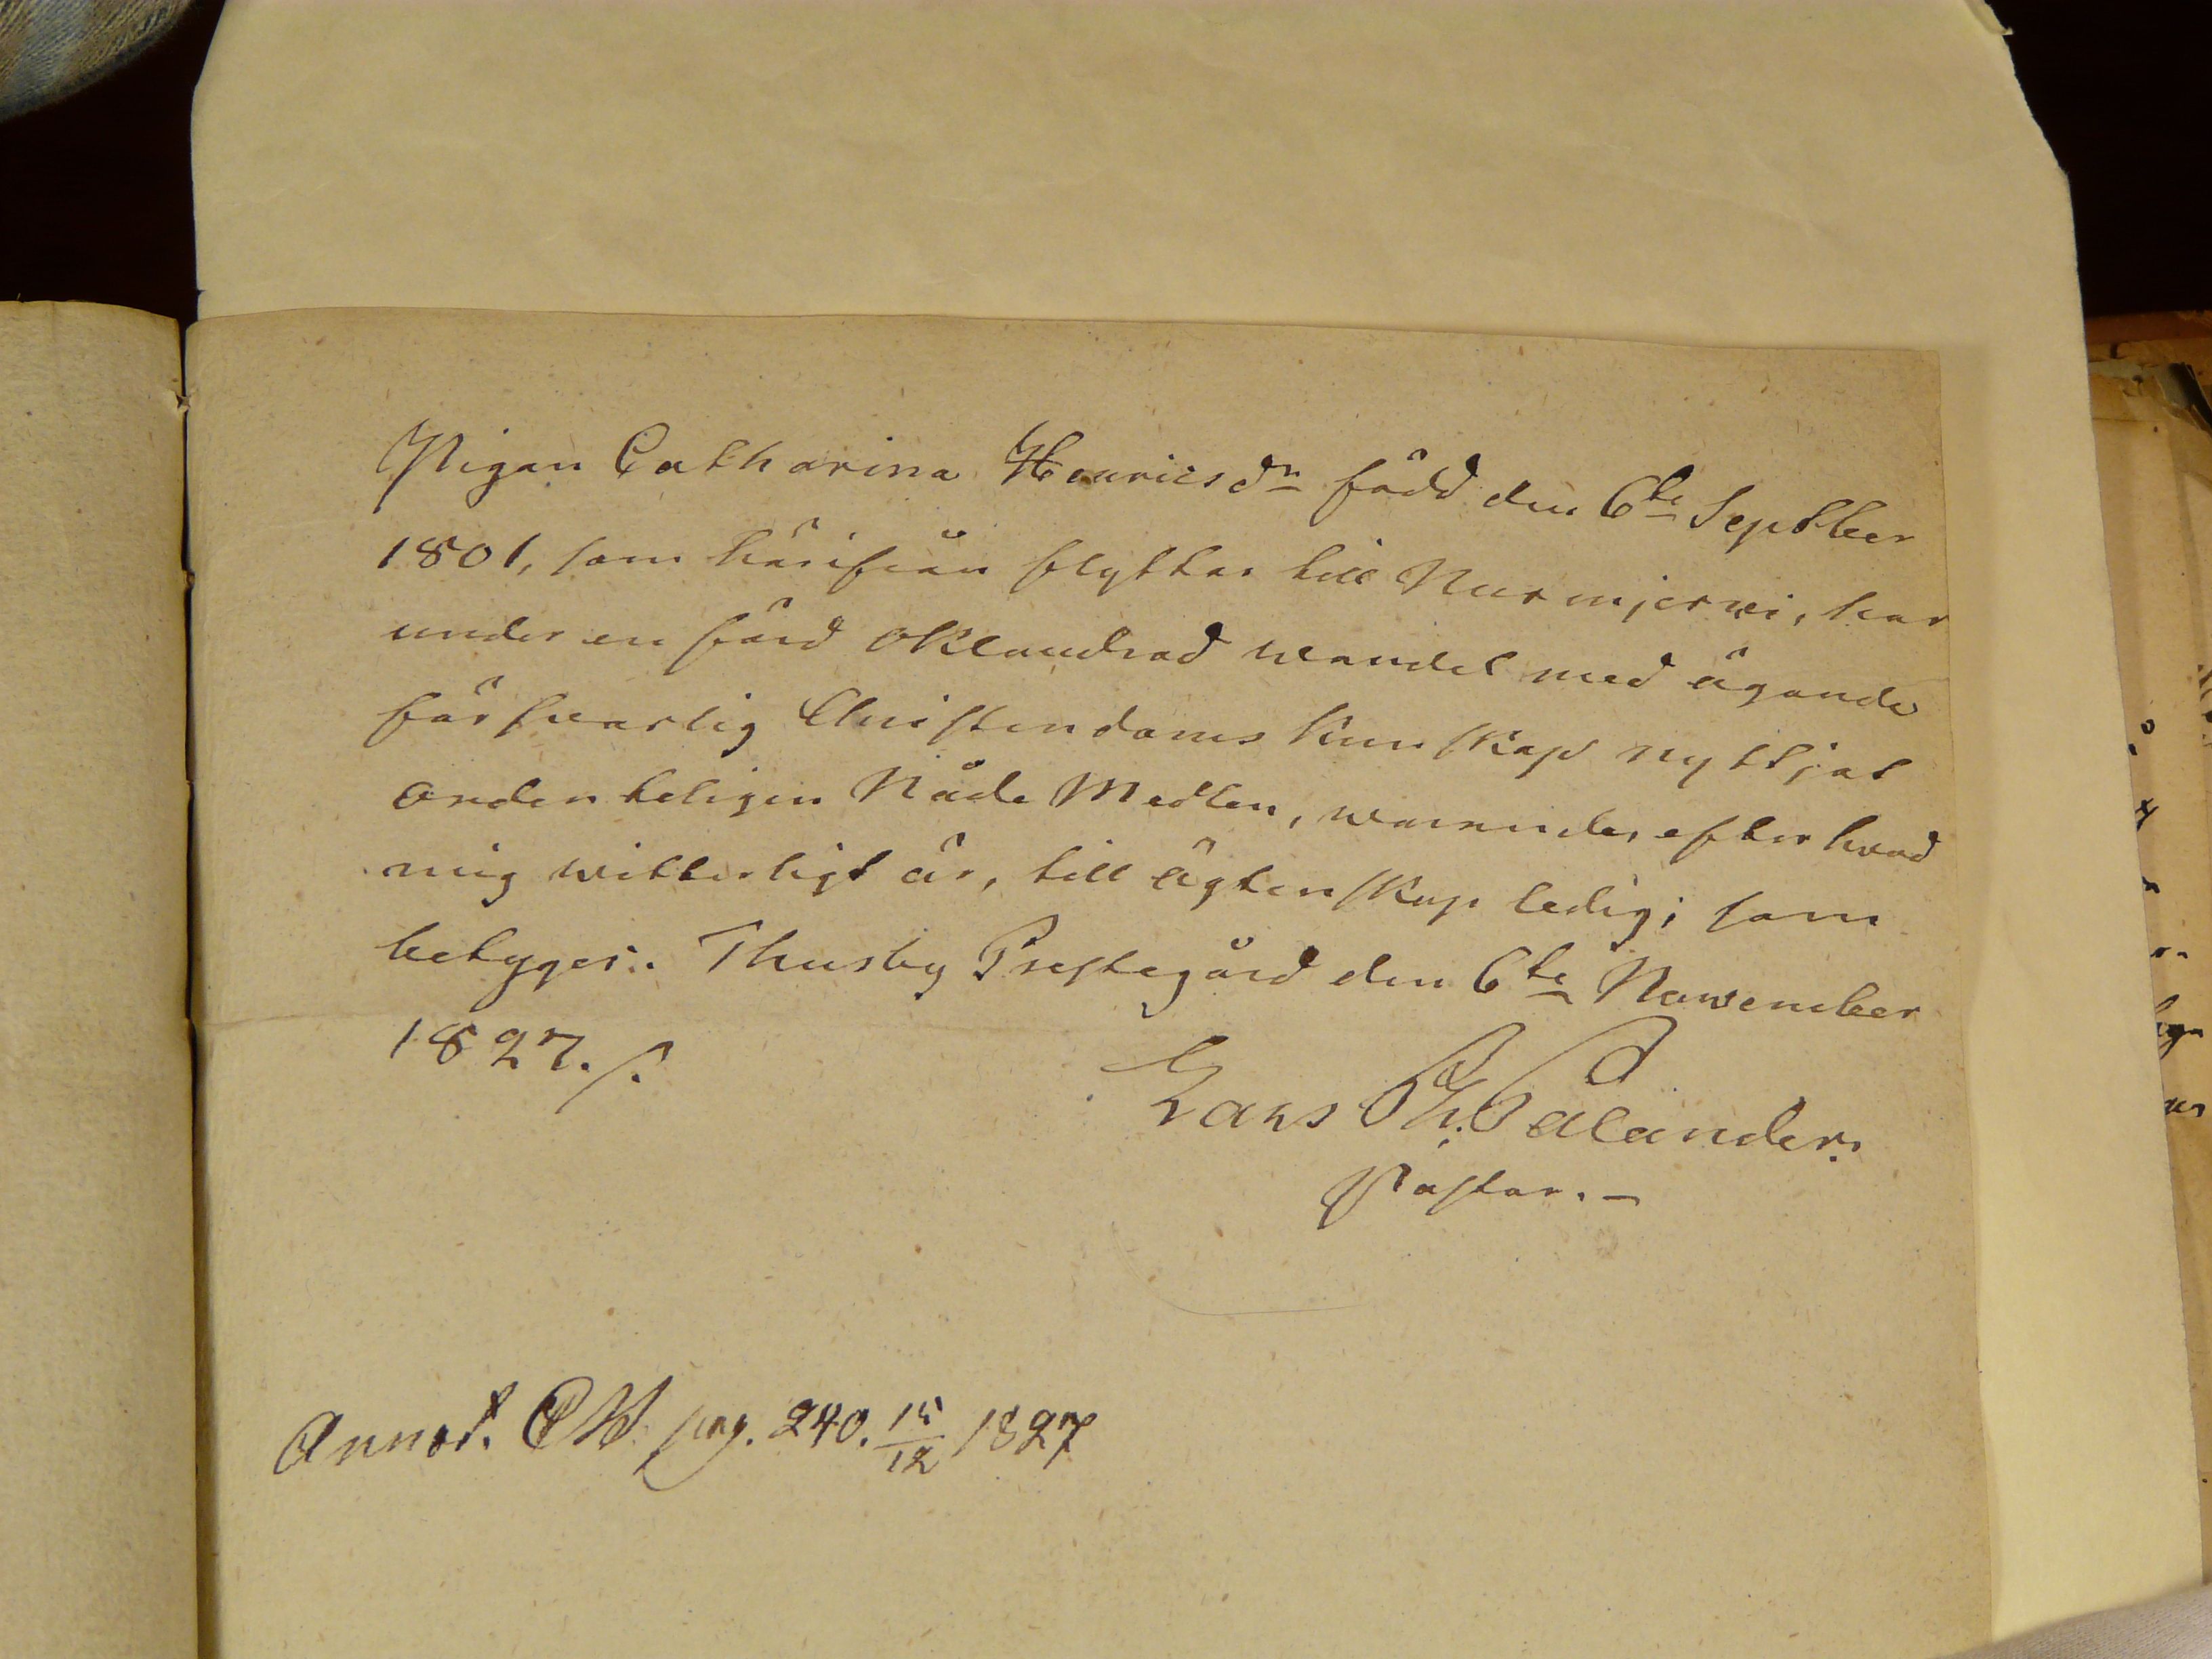 Pigan Catharina Henricsdr född den 6te Septber
1801, som härifrån flyttar till Nurmjerwi, har
under en förd oklandrad wandel med ägande
försvarlig Christendoms kunskap nyttjat
ordenteligen Nåde Medlen, warandes efter hvad
mig witterligt är, till ägtenskap ledig; som
betygar. Thusby Prestegård den 6te November
1827./.
Lars Ph. Palander.
Pastor. –
Annot. C.B. pag. 240. 15/12 1827